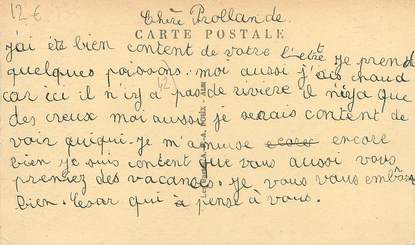 12 €
Chère Prollande.
CARTE POSTALE
j'ai été bien content de votre l'netre je prend
quelques poissons. moi aussi j'ais chaud
car ici il n'iya pas de riviere il n'iya que
des creux moi aussi je serais content de
voir quiqui. je m'amuse encore
bien je suis content que vous aussi vous
prenlez des vacanses. je vous vous embras
bien. Cesar qui à pense à vous.